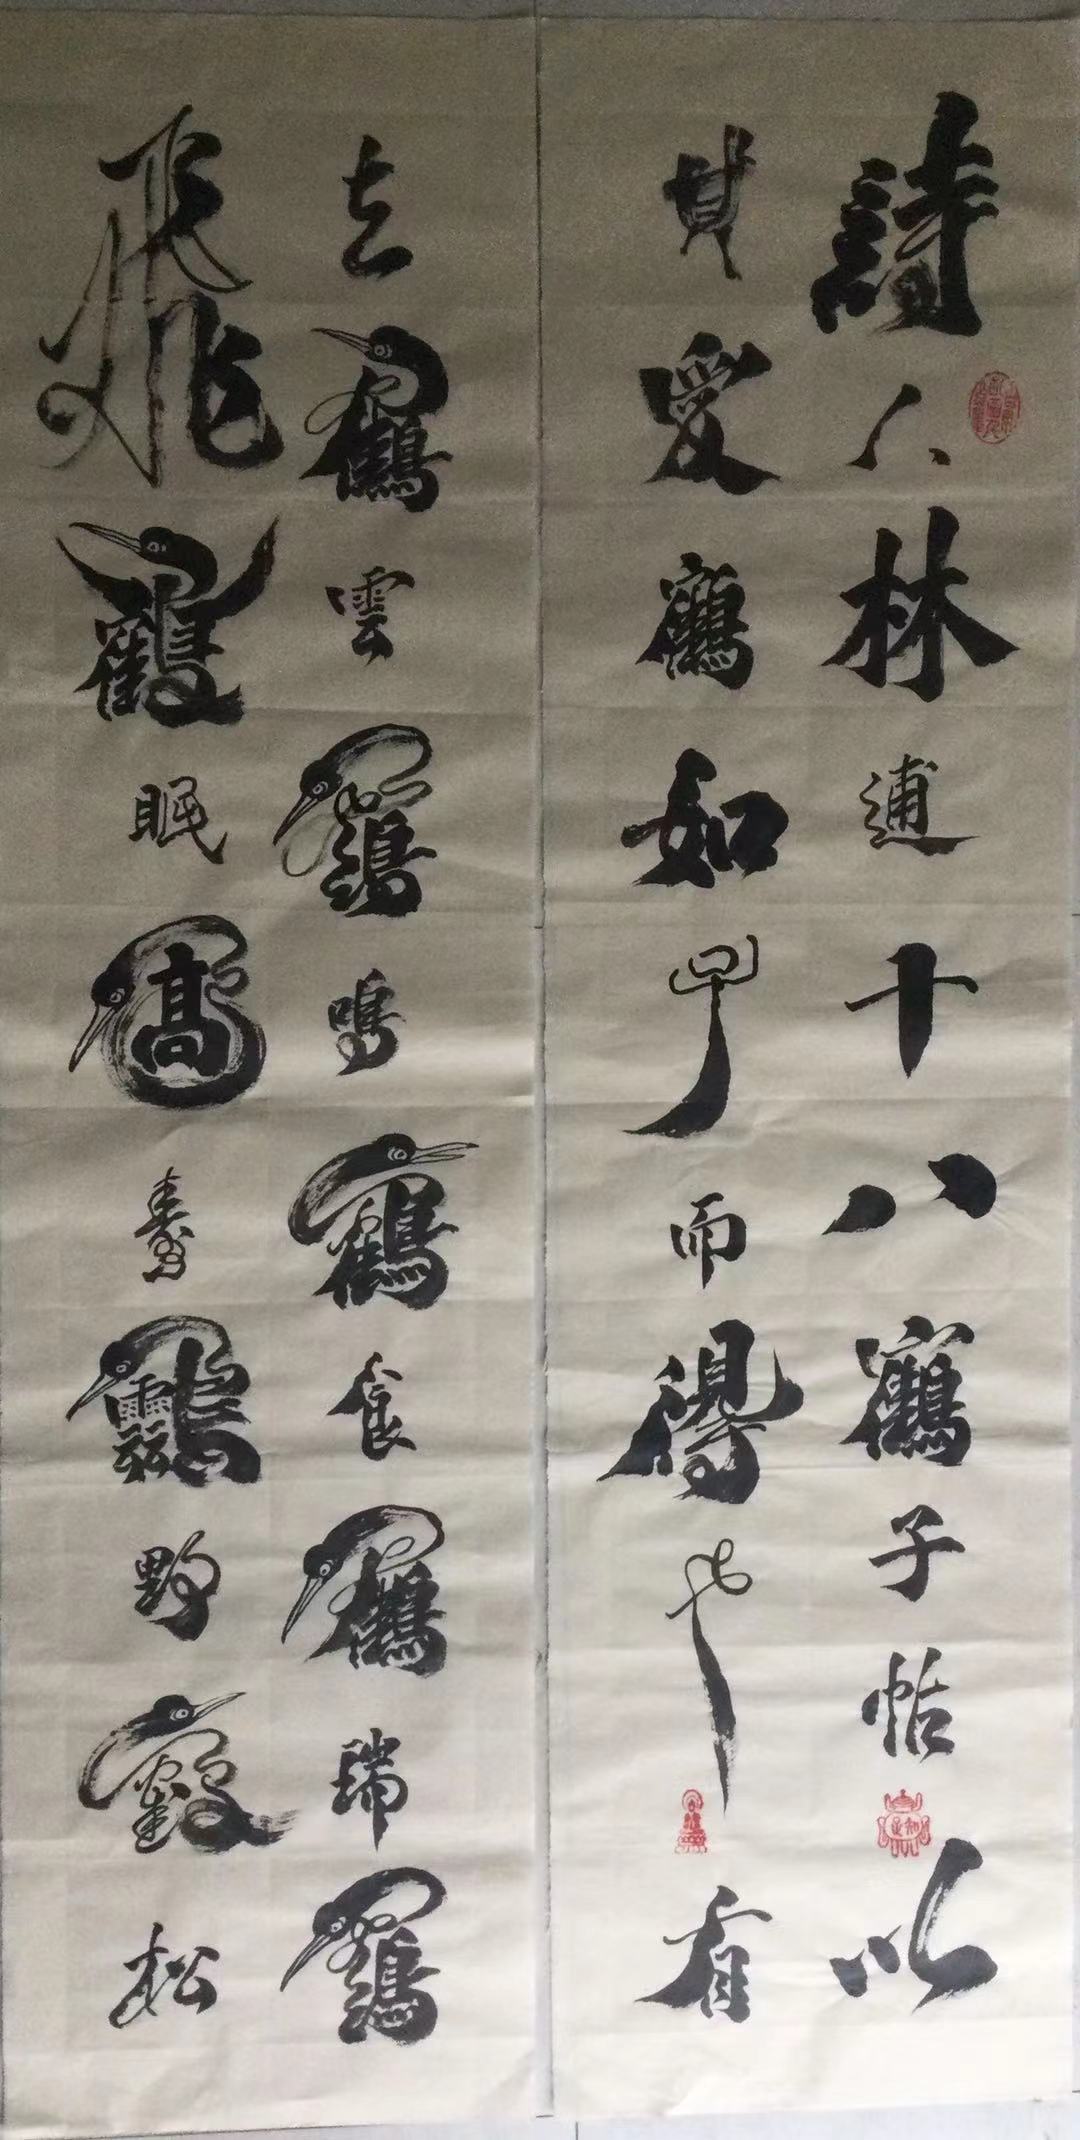 詩人林逋十八鶴子帖以
其愛鶴如子而得也有
立鶴雲鶴鳴鶴食鶴瑞鶴
飛鶴眠鶴壽鶴野鶴松